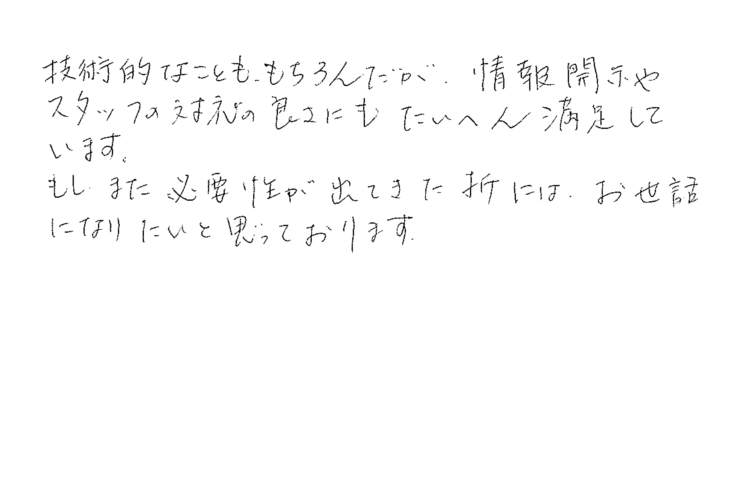 技術的なことも、もちろんだが、情報開示や
スタッフの対応の良さにも たいへん満足して
います。
もし、また必要性が出てきた折には、お世話
になりたいと思っております。